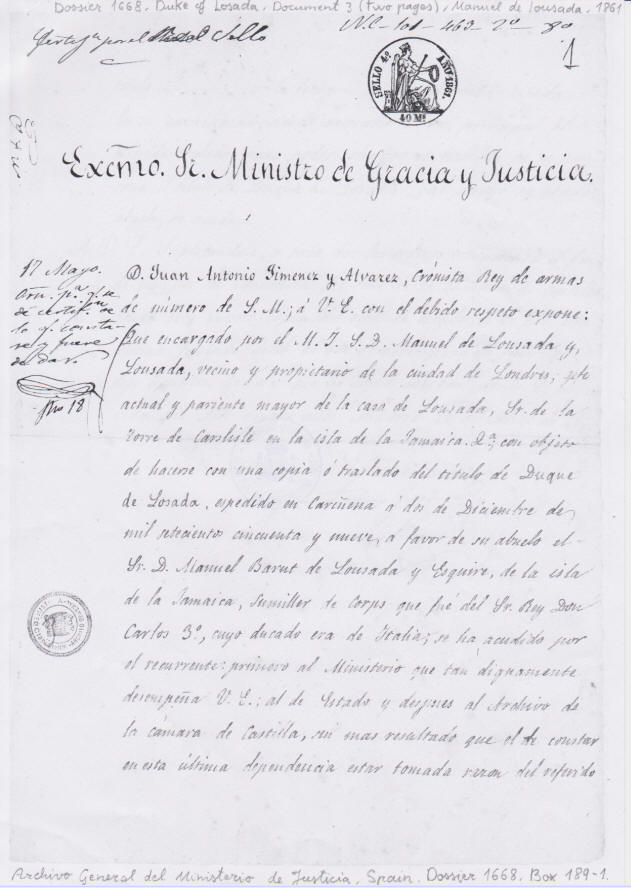 Dossier 1668. Duke of Losada. Document 3 (two pages). Manuel de Lousada. 1861
Sello
1
SELLO 4º AÑO 1861.
40 Ms
Excm̃o. Sr. Ministro de Gracia y Justicia.
17 Mayo.
D. Juan Antonio Jimenez y Alvarez, Cronista Rey de armas
de número de S. M.; á V. E. con el debido respeto expone:
Que encargado por el M. I. S. D. Manuel de Lousada y,
Lousada, vecino y propietario de la ciudad de Londres, gefe
actual y pariente mayor de la casa de Lousada, Sr. de la
Torre de Carslisle en la isla de la Jamaica. &ª; con objeto
de hacerse con una copia ó traslado del título de Duque
de Losada, espedido en Cariñena á dos de Diciembre de
mil setecientos cincuenta y nueve, á favor de su abuelo el
Sr. D. Manuel Barut de Lousada y Esquire, de la isla
de la Jamaica, Sumiller de Corps que fué del Sr. Rey Don
Carlos 3º, cuyo ducado era de Italia; se ha acudido por
el recurrente: primero al Ministerio que tan dignamente
desempeña V. E.; al de Estado y despues al Archivo de
la cámara de Castilla, sin mas resultado que el de constar
en esta última dependencia estar tomada razon del referido
Archivo General del Ministerio de Justicia, Spain. Dossier 1668. Box 189-1.